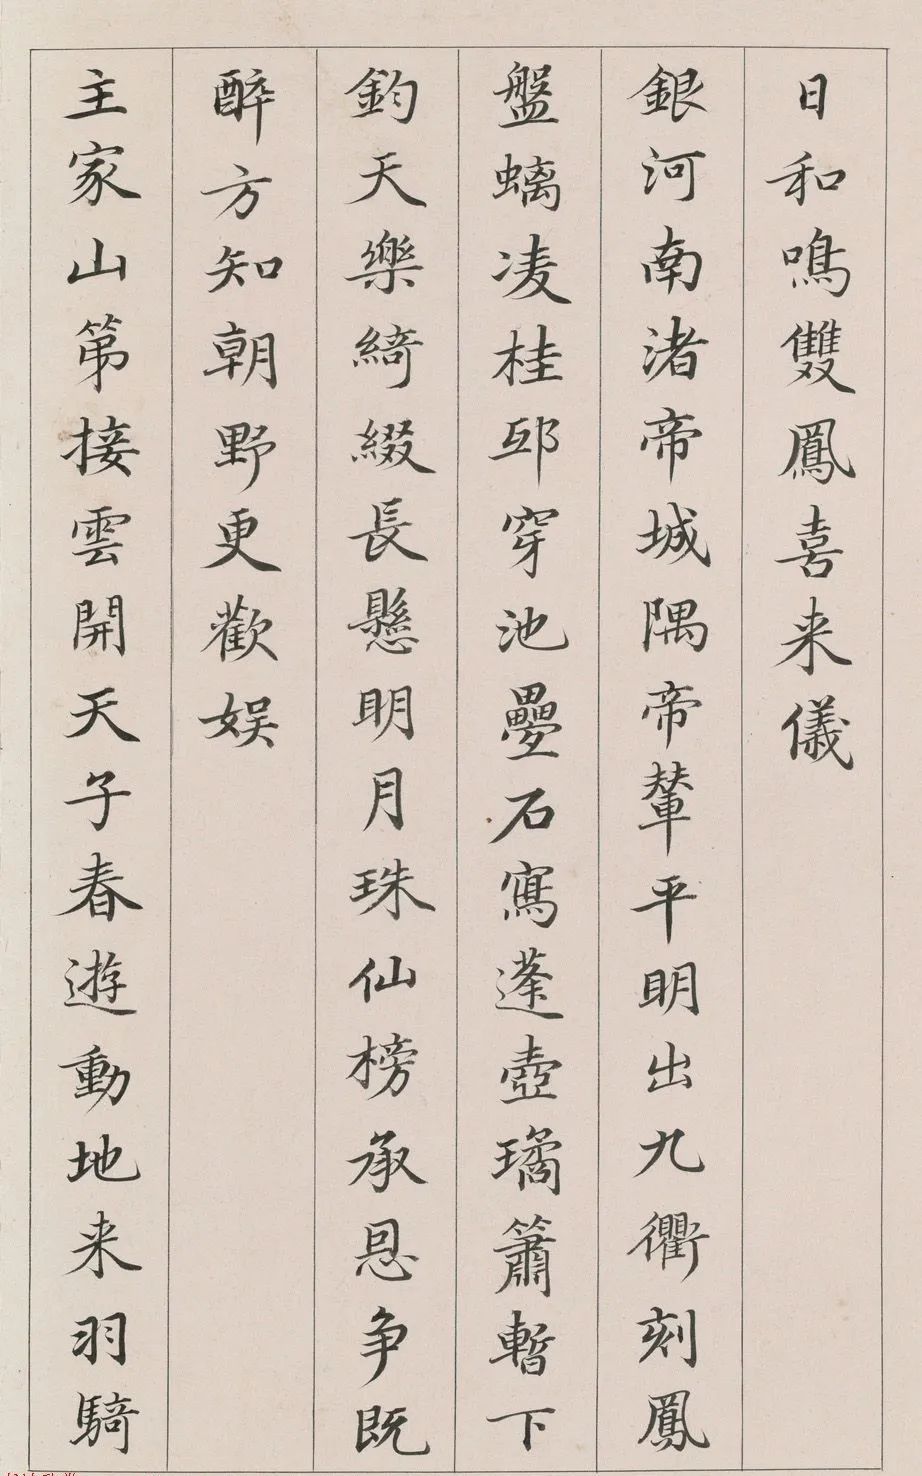 日和鳴雙鳳喜来儀
銀河南渚帝城隅帝輦平明出九衢刻鳳
盤螭凌桂邸穿池疊石寫蓬壺璚簫暫下
鈞天樂綺綴長懸明月珠仙榜承恩争既
醉方知朝野更歡娱
主家山第接雲開天子春遊動地来羽騎